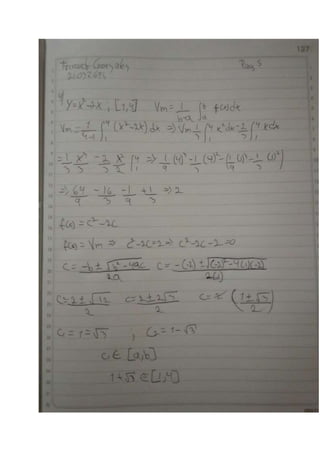 127
Pag. 5
y) y=x²-2x, [1,4] Vm = 1/(b-a) ∫ₐᵇ f(x)dx
Vm = 1/(4-1) ∫₁⁴ (x²-2x)dx ⇒ Vm 1/3 ∫₁⁴ x²dx - 2/3 ∫₁⁴ xdx
= 1/3 x³/3 - 2/3 x²/2 ∫₁⁴ ⇒ 1/9 (4)³ - 1/3 (4)² - (1/9 (1)³ - 1/3 (1)²)
⇒ 64/9 - 16/3 - 1/9 + 1/3 ⇒ 2
f(c) = c²-2c
f(c) = Vm ⇒ c²-2c=2 ⇒ c²-2c-2=0
c = (-b±√(b²-4ac))/2a c = (-(-2)±√((-2)²-4(1)(-2)))/2(1)
c = (2±√12)/2 c = (2±2√3)/2 c = 2((1±√3)/2)
c₁ = 1+√3 , c₂ = 1-√3
c₁ ∈ [a,b]
1+√3 ∈ [1,4]